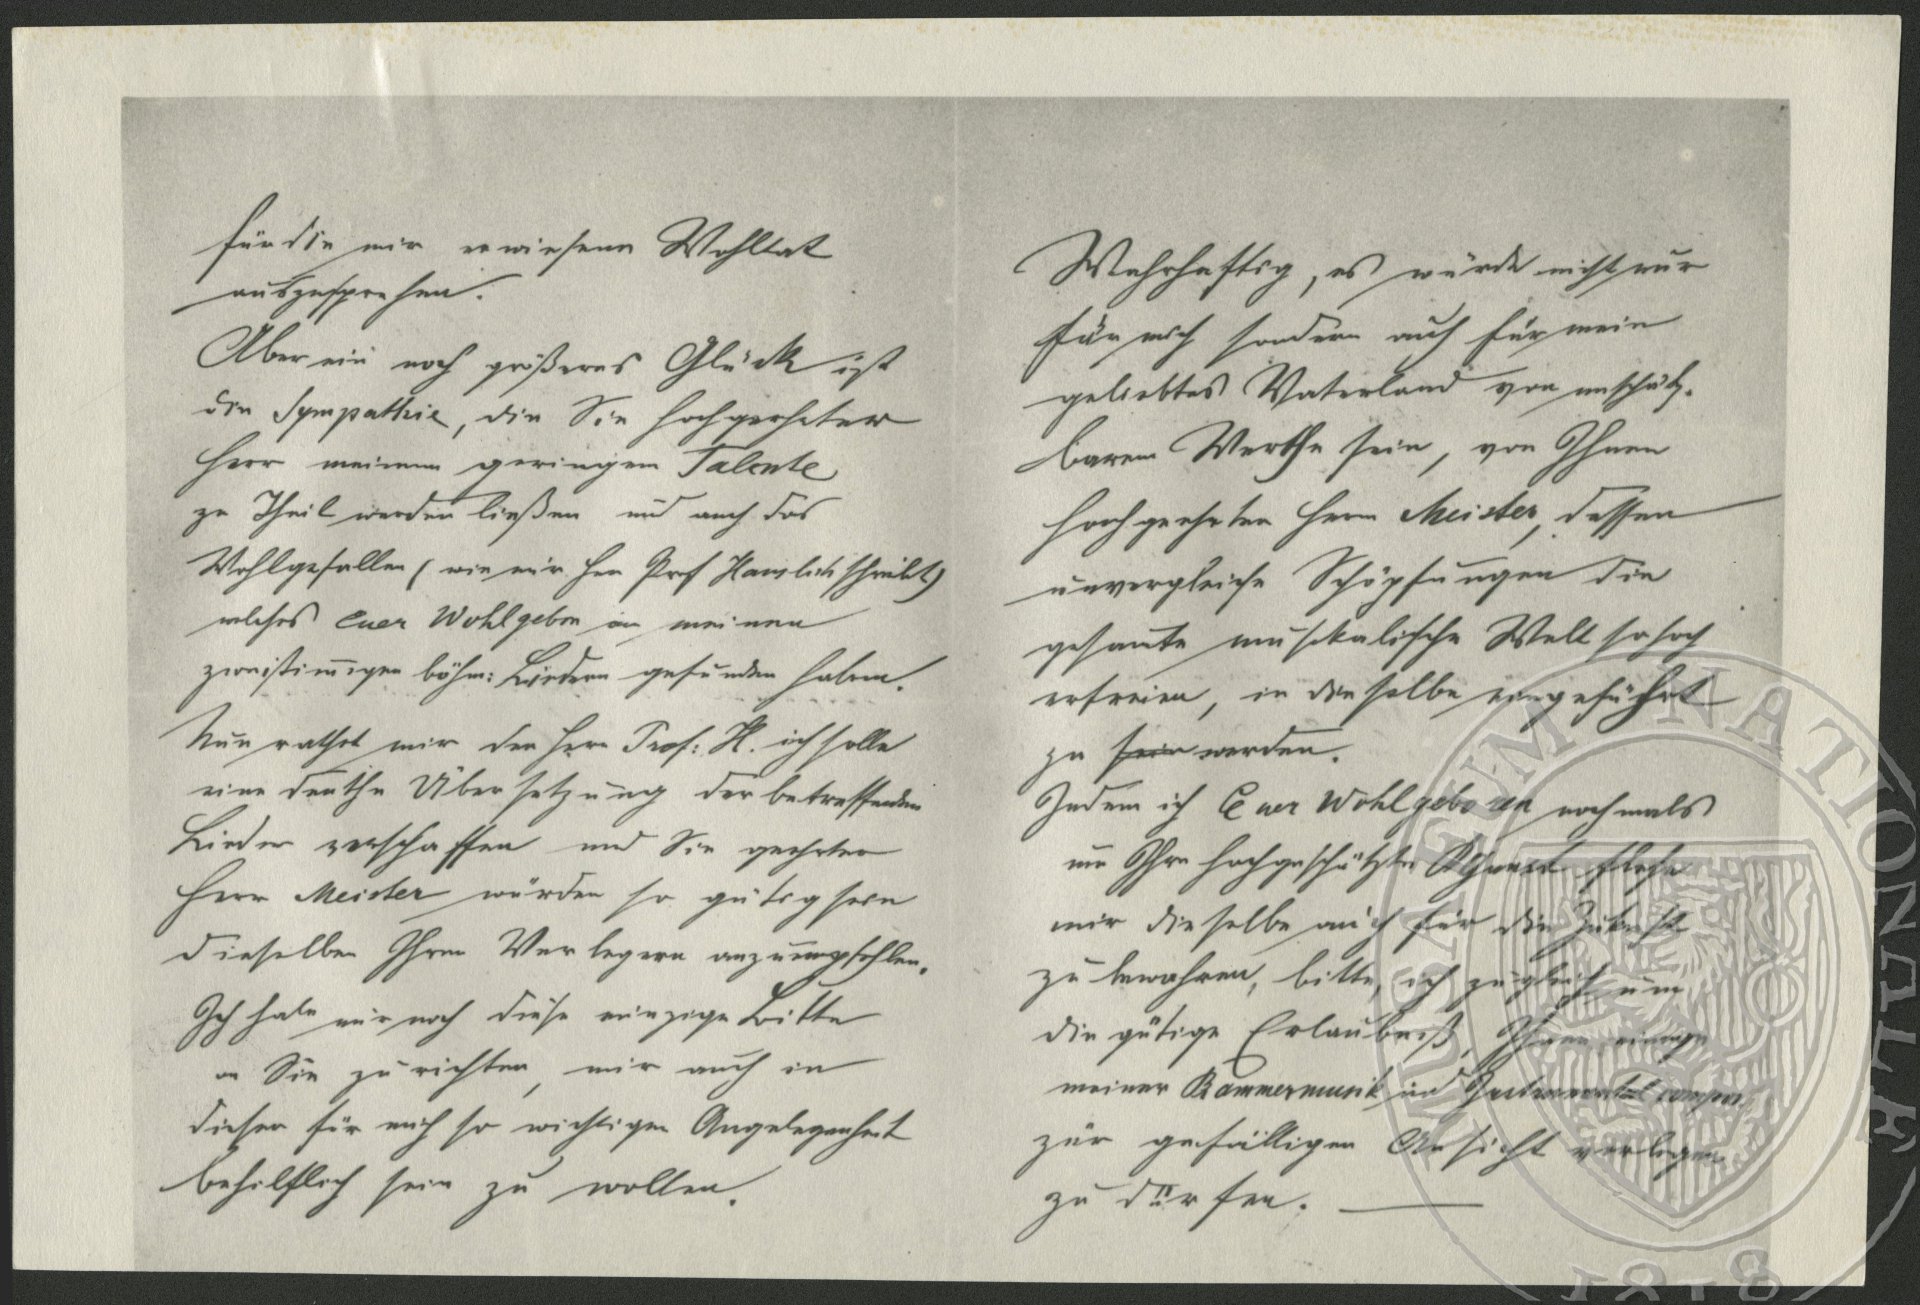 für die mir erwiesene Wohltat
auszusprechen.
Aber ein noch größeres Glück ist
die Sympathie, die Sie hochgeehrter
Herr meinem geringem Talente
zu Theil werden ließen und auch das
Wohlgefallen (wie mir Herr Prof Hanslick schreibt)
welches Euer Wohlgebor an meinen
zweistimmigen böhm: Liedern gefunden haben.
Nun rathet mir der Herr Prof: H. ich solle
eine deutsche Übersetzung der betreffenden
Lieder verschaffen und Sie geehrter
Herr Meister würden so gütig sein
dieselben Ihrem Verlegern anzuempfehlen.
Ich habe nur noch diese einzige Bitte
an Sie zu richten, mir auch in
dieser für mich so wichtigen Angelegenheit
behilflich sein zu wollen.
Wahrhaftig, es würde nicht nur
für mich sondern auch für mein
geliebtes Vaterland von unschätz-
barem Werthe sein, von Ihnen
hochgeehrten Herrn Meister, dessen
unvergleiche Schöpfungen die
gesamte musikalische Welt so hoch
erfreien, in dieselbe eingeführt
zu sein werden.
Indem ich Euer Wohlgeboren nochmals
um Ihre hochgeschätzte flehe
mir dieselbe auch für die Zukunft
zu bewahren, bitte, ich zugleich um
die gütige Erlaubniß, Ihnen einige
meiner Kammermusik und Instrumental compos.
zur gefälligen Ansicht vorlegen
zu dürfen.
MUSAEUM NATIONALE
1818